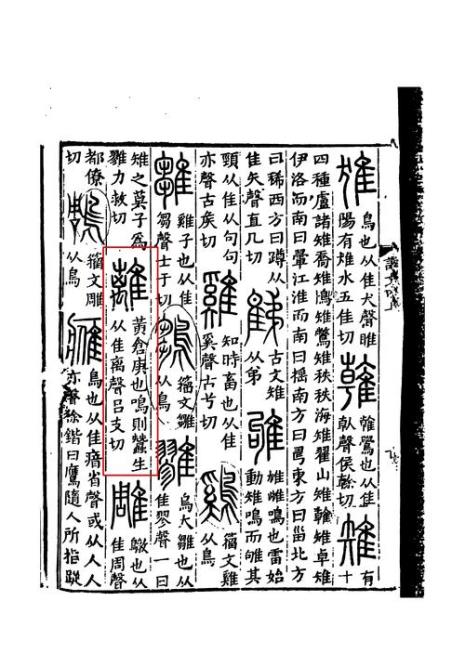 𨾚 鳥也从隹犬聲睢
陽有𨾚水五佳切 雗 雗鷽也从隹
倝聲矦榦切 雉 有十
四種盧諸雉喬雉鳪雉鷩雉秩秩海雉翟山雉雗雉卓雉
伊洛而南曰翬江淮而南曰搖南方曰𢏚東方曰甾北方
曰稀西方曰蹲从
隹矢聲直几切 古文雉
从弟 雊 雄雌鳴也雷始
動雉鳴而雊其
頸从隹从句句
亦聲古矦切 雞 知時畜也从隹
奚聲古兮切 鷄 籒文雞
从鳥
雛 雞子也从隹
芻聲士于切 鶵 籒文雛
从鳥 雡 鳥大雛也从
隹翏聲一曰
雉之莫子爲
雡力救切 離 黃倉庚也鳴則蠶生
从隹离聲吕支切 雕 鷻也从
隹周聲
都僚
切 鵰 籒文雕
从鳥 䧹 鳥也从隹瘖省聲或从人人
亦聲徐鍇曰鷹隨人所指䠱